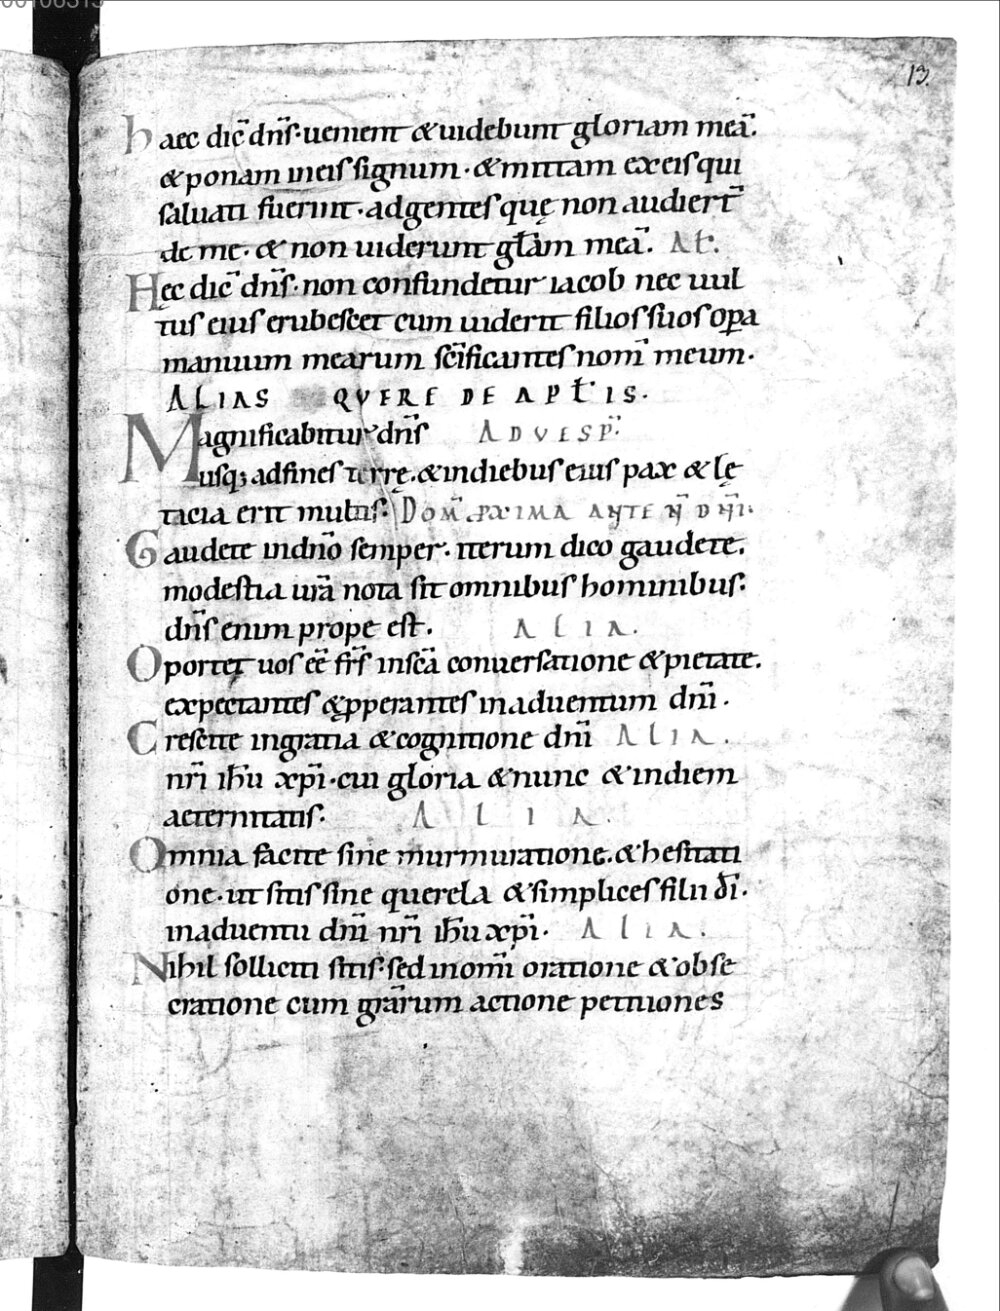 13.
haec dic̄ dn̄s· uenient & uidebunt gloriam meā·
& ponam in eis signum · & mittam ex eis qui
saluati fuerint · ad gentes quę non audiert̄
de me· & non uiderunt gl̄am meā. At̄.
Hęc dic̄ dn̄s· non confundetur iacob nec uul
tus eius erubescet cum uiderit filios suos oꝑa
manuum mearum sc̄ificantes nom̄ meum·
ALIAS QVERE DE APL̄IS.
Magnificabitur dn̄s AD VESP̄:
usq; ad fines terrę. & in diebus eius pax & lę
ticia erit multis: DOM̄ PRIMA ANTE N̄ DN̄I.
Gaudete in dn̄o semper· iterum dico gaudete.
modestia ur̄a nota sit omnibus hominibus:
dn̄s enim prope est. ALIA.
Oportet uos eē fr̄s in sc̄a conuersatione & pietate.
expectantes & ꝓperantes in aduentum dn̄i ·
Crescite in gratia & cognitione dn̄i ALIA.
nr̄i ih̄u xp̄i· cui gloria & nunc & in diem
aeternitatis· ALIA.
Omnia facite sine murmuratione. & hesitati
one· ut sitis sine querela & simplices filii dī·
in aduentu dn̄i nr̄i ih̄u xp̄i· ALIA.
Nihil solliciti sitis· sed in om̄i oratione & obse
cratione cum gr̄arum actione petitiones